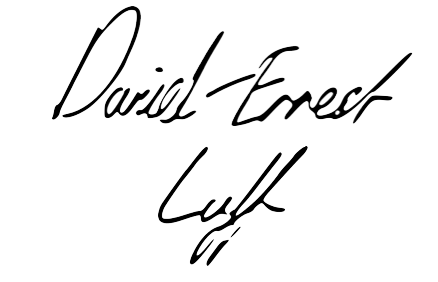 Daniel-Ernest
Luff